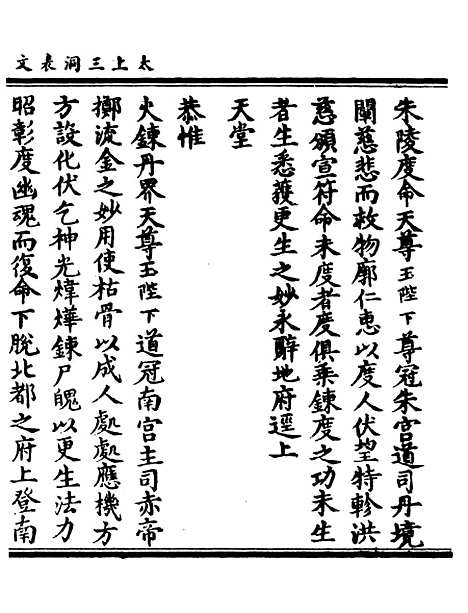 太上三洞表文
朱陵度命天尊玉陛下尊冠朱宫道司丹境
闡慈悲而救物廓仁惠以度人伏望特軫洪
慈頒宣符命未度者度俱乘鍊度之功未生
者生悉獲更生之妙永辭地府逕上
天堂
恭惟
火鍊丹界天尊玉陛下道冠南宫主司赤帝
擲流金之妙用使枯骨以成人處處應機方
方設化伏乞神光煒燁鍊尸魄以更生法力
昭彰度幽魂而復命下脫北都之府上登南